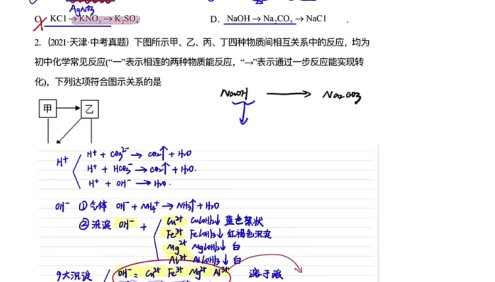 AgNO₃
C. KCl → KNO₃ → K₂SO₄ D. NaOH → Na₂CO₃ → NaCl .
2.（2021·天津·中考真题）下图所示甲、乙、丙、丁四种物质间相互关系中的反应，均为
初中化学常见反应("一"表示相连的两种物质能反应，"→"表示通过一步反应能实现转
化)，下列达项符合图示关系的是
NaOH → Na₂CO₃
甲 → 乙
H⁺ + CO₃²⁻ → CO₂↑ + H₂O
H⁺
H⁺ + HCO₃⁻ → CO₂↑ + H₂O.
H⁺ + OH⁻ → H₂O.
OH⁻ ①气体 OH⁻ + NH₄⁺ → NH₃↑ + H₂O
②沉淀 OH⁻ + Cu²⁺ Cu(OH)₂↓ 蓝色絮状
Fe³⁺ Fe(OH)₃↓ 红褐色沉淀
Mg²⁺ Mg(OH)₂↓ 白
Al³⁺ Al(OH)₃↓ 白
9大沉淀 OH⁻ = Cu²⁺ Fe³⁺ Mg²⁺ Al³⁺ 溶于酸